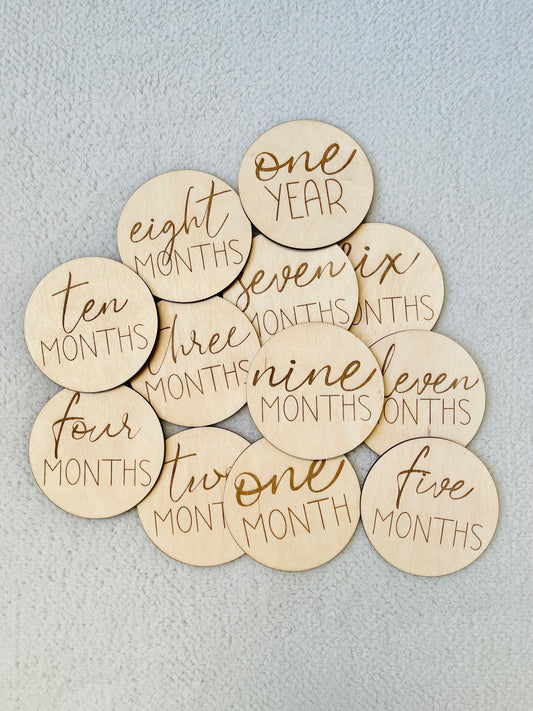 one
YEAR
eight
MONTHS
seven
MONTHS
six
MONTHS
ten
MONTHS
three
MONTHS
nine
MONTHS
eleven
MONTHS
four
MONTHS
two
MONTHS
one
MONTH
five
MONTHS